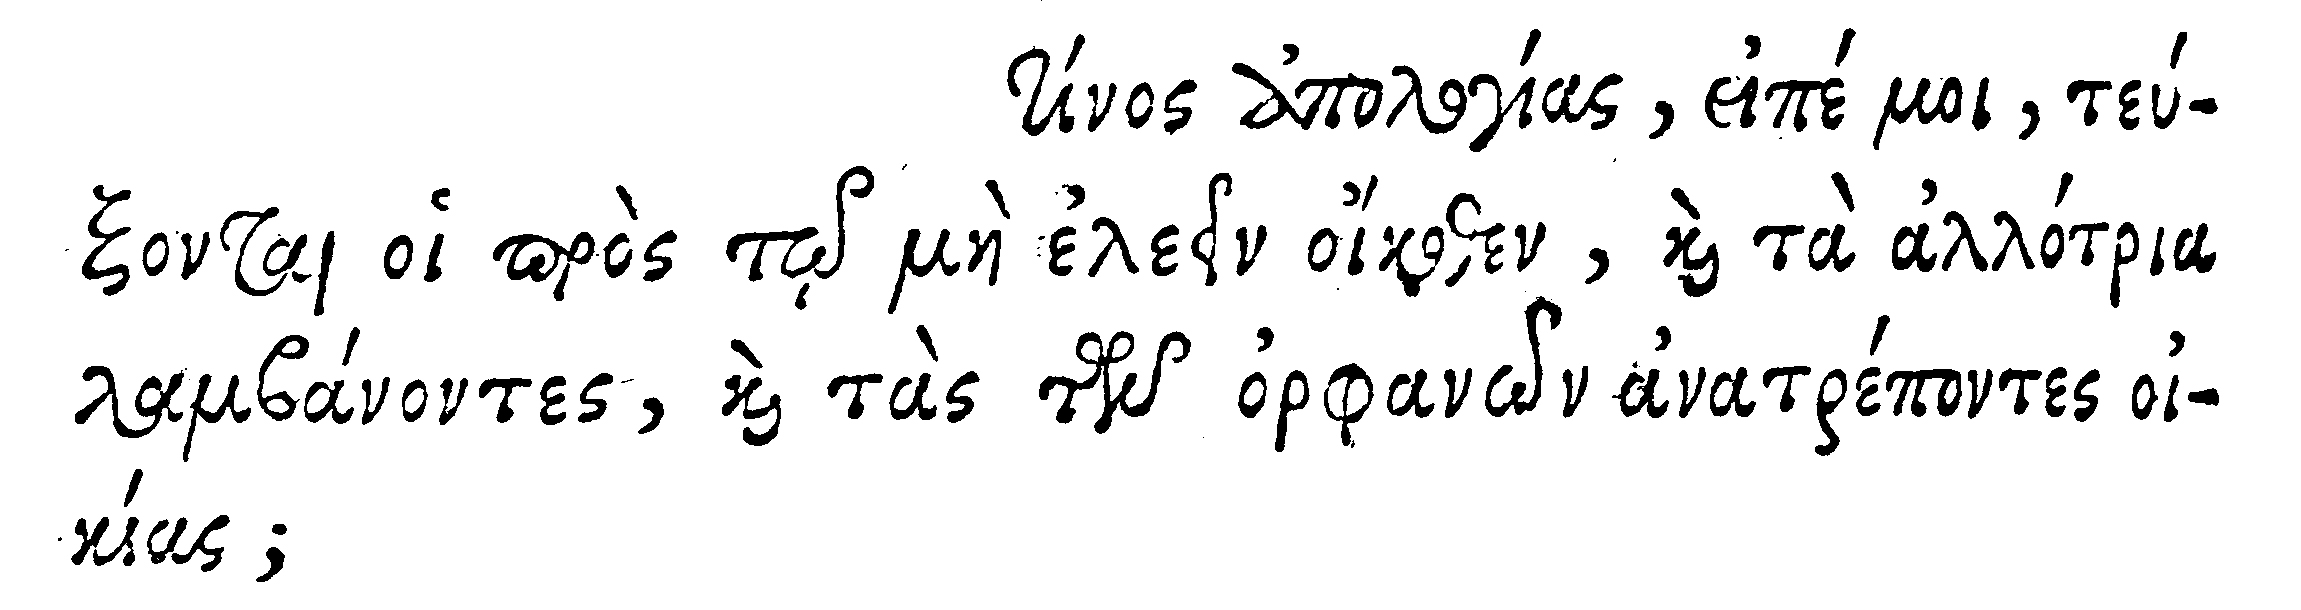 τίνος ἀπολογίας, εἰπέ μοι, τεύ-
ξονται οἱ πρὸς τῷ μὴ ἐλεεῖν οἴκοθεν, καὶ τὰ ἀλλότρια
λαμβάνοντες, καὶ τὰς τῶν ὀρφανῶν ἀνατρέποντες οἰ-
κίας;